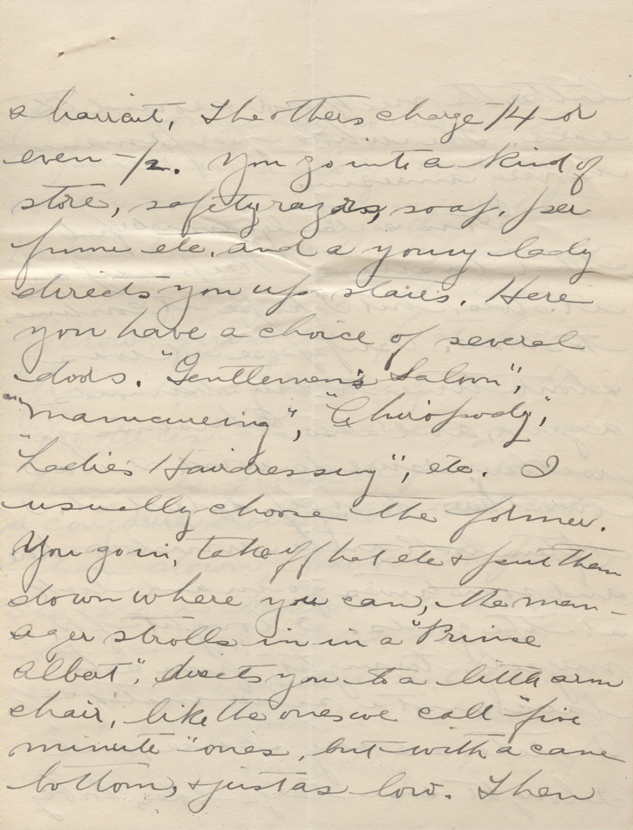 a haircut, The others charge -/4 or
even -/2. You go into a kind of
store, safety razors, soap, per
fume etc. and a young lady
directs you up stairs. Here
you have a choice of several
doors. "Gentlemen's Saloon",
"Manicureing", "Chiropody",
"Ladies Hairdressing", etc. I
usually choose the former.
You go in, take off hat etc & put them
down where you can, the man-
ager strolls in in a "Prince
Albert", directs you to a little arm
chair, like the ones we call "five
minute" ones, but with a cane
bottom, & just as low. Then